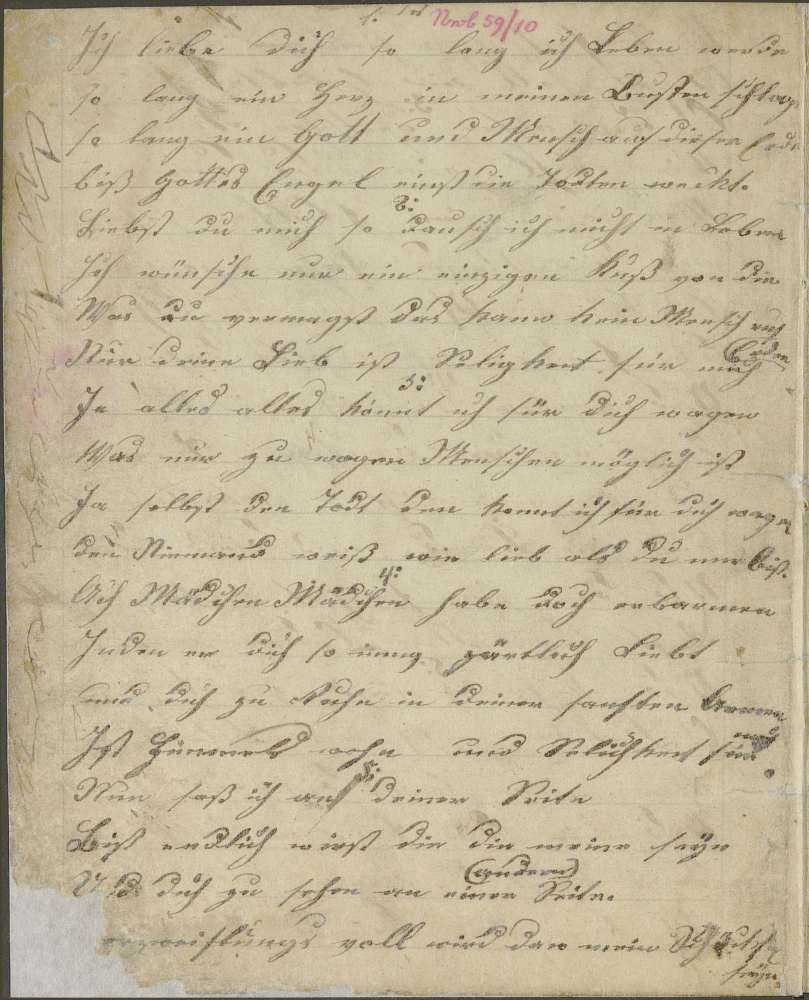 Nrob 59/10
Ich liebe dich so lang ich Leben werde
so lang ein Herz in meinen Busten schlag
so lang ein Gott und Mensch auf dieser Erde
biß Gottes Engel einst die Todten weckt.
2:
Liebst du mich so Tausch ich nicht in Leben
Ich wünsche nur ein einzigen Kuß von dir
Was du vermagst das kann kein Mensch auf
Erden
Nur deine Lieb ist Seligkeit für mich
3:
Ja alles alles könnt ich für dich wagen
Was nur zu wagen Menschen möglich ist
Ja selbst den Todt den konnt ich für dich wagen
den Niemand weiß wie lieb als du mir bist.
4:
Ach Mädchen Mädchen habe doch erbarmen
Inden er dich so inng zärtlich Liebt
und dich zu Ruhn in deiner sanften Armen
Ist Himmels wohn und Selichkeit für
mich.
5:
Nun saß ich auf deiner Seite
Biß endlich wirst die die meine seyn
U d dich zu sehen an einer Seite.
(anderer)
voll wird dan mein
seyn.